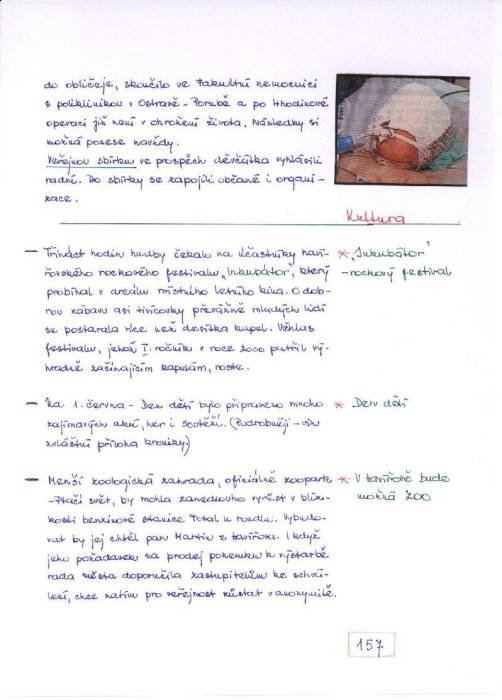 do obličeje, skončilo ve Fakultní nemocnici
s poliklinikou v Ostravě - Porubě a po hodinové
operaci již není v ohrožení života. Následky si
možná ponese navždy.
Veřejnou sbírku ve prospěch děvčátka vyhlásili
radní. Do sbírky se zapojili občané i organi-
zace.
Kultura
- Třináct hodin hudby čekalo na účastníky haví-
řovského rockového festivalu „Inkubátor", který
probíhal v areálu místního letního kina. O dob-
rou zábavu asi tisícovky převážně mladých lidí
se postarala více než desítka kapel. Věhlas
festivalu, jehož I. ročník v roce 2000 patřil vý-
hradně začínajícím kapelám, roste.
* „Inkubátor"
- rockový festival
- Na 1. června - Den dětí bylo připraveno mnoho
zajímavých akcí, her i soutěží. (Podrobněji - viz
zvláštní příloha kroniky)
* Den dětí
- Menší zoologická zahrada, oficiálně zoopark
- Ptačí svět, by mohla zanedlouho vyrůst v blíz-
kosti benzinové stanice Total u rondlu. Vybudo-
vat by jej chtěl pan Martin z Havířova. I když
jeho požadavek na prodej pozemku k výstavbě
rada města doporučila zastupitelům ke schvá-
lení, chce zatím pro veřejnost zůstat v anonymitě.
* V Havířově bude
možná ZOO
157